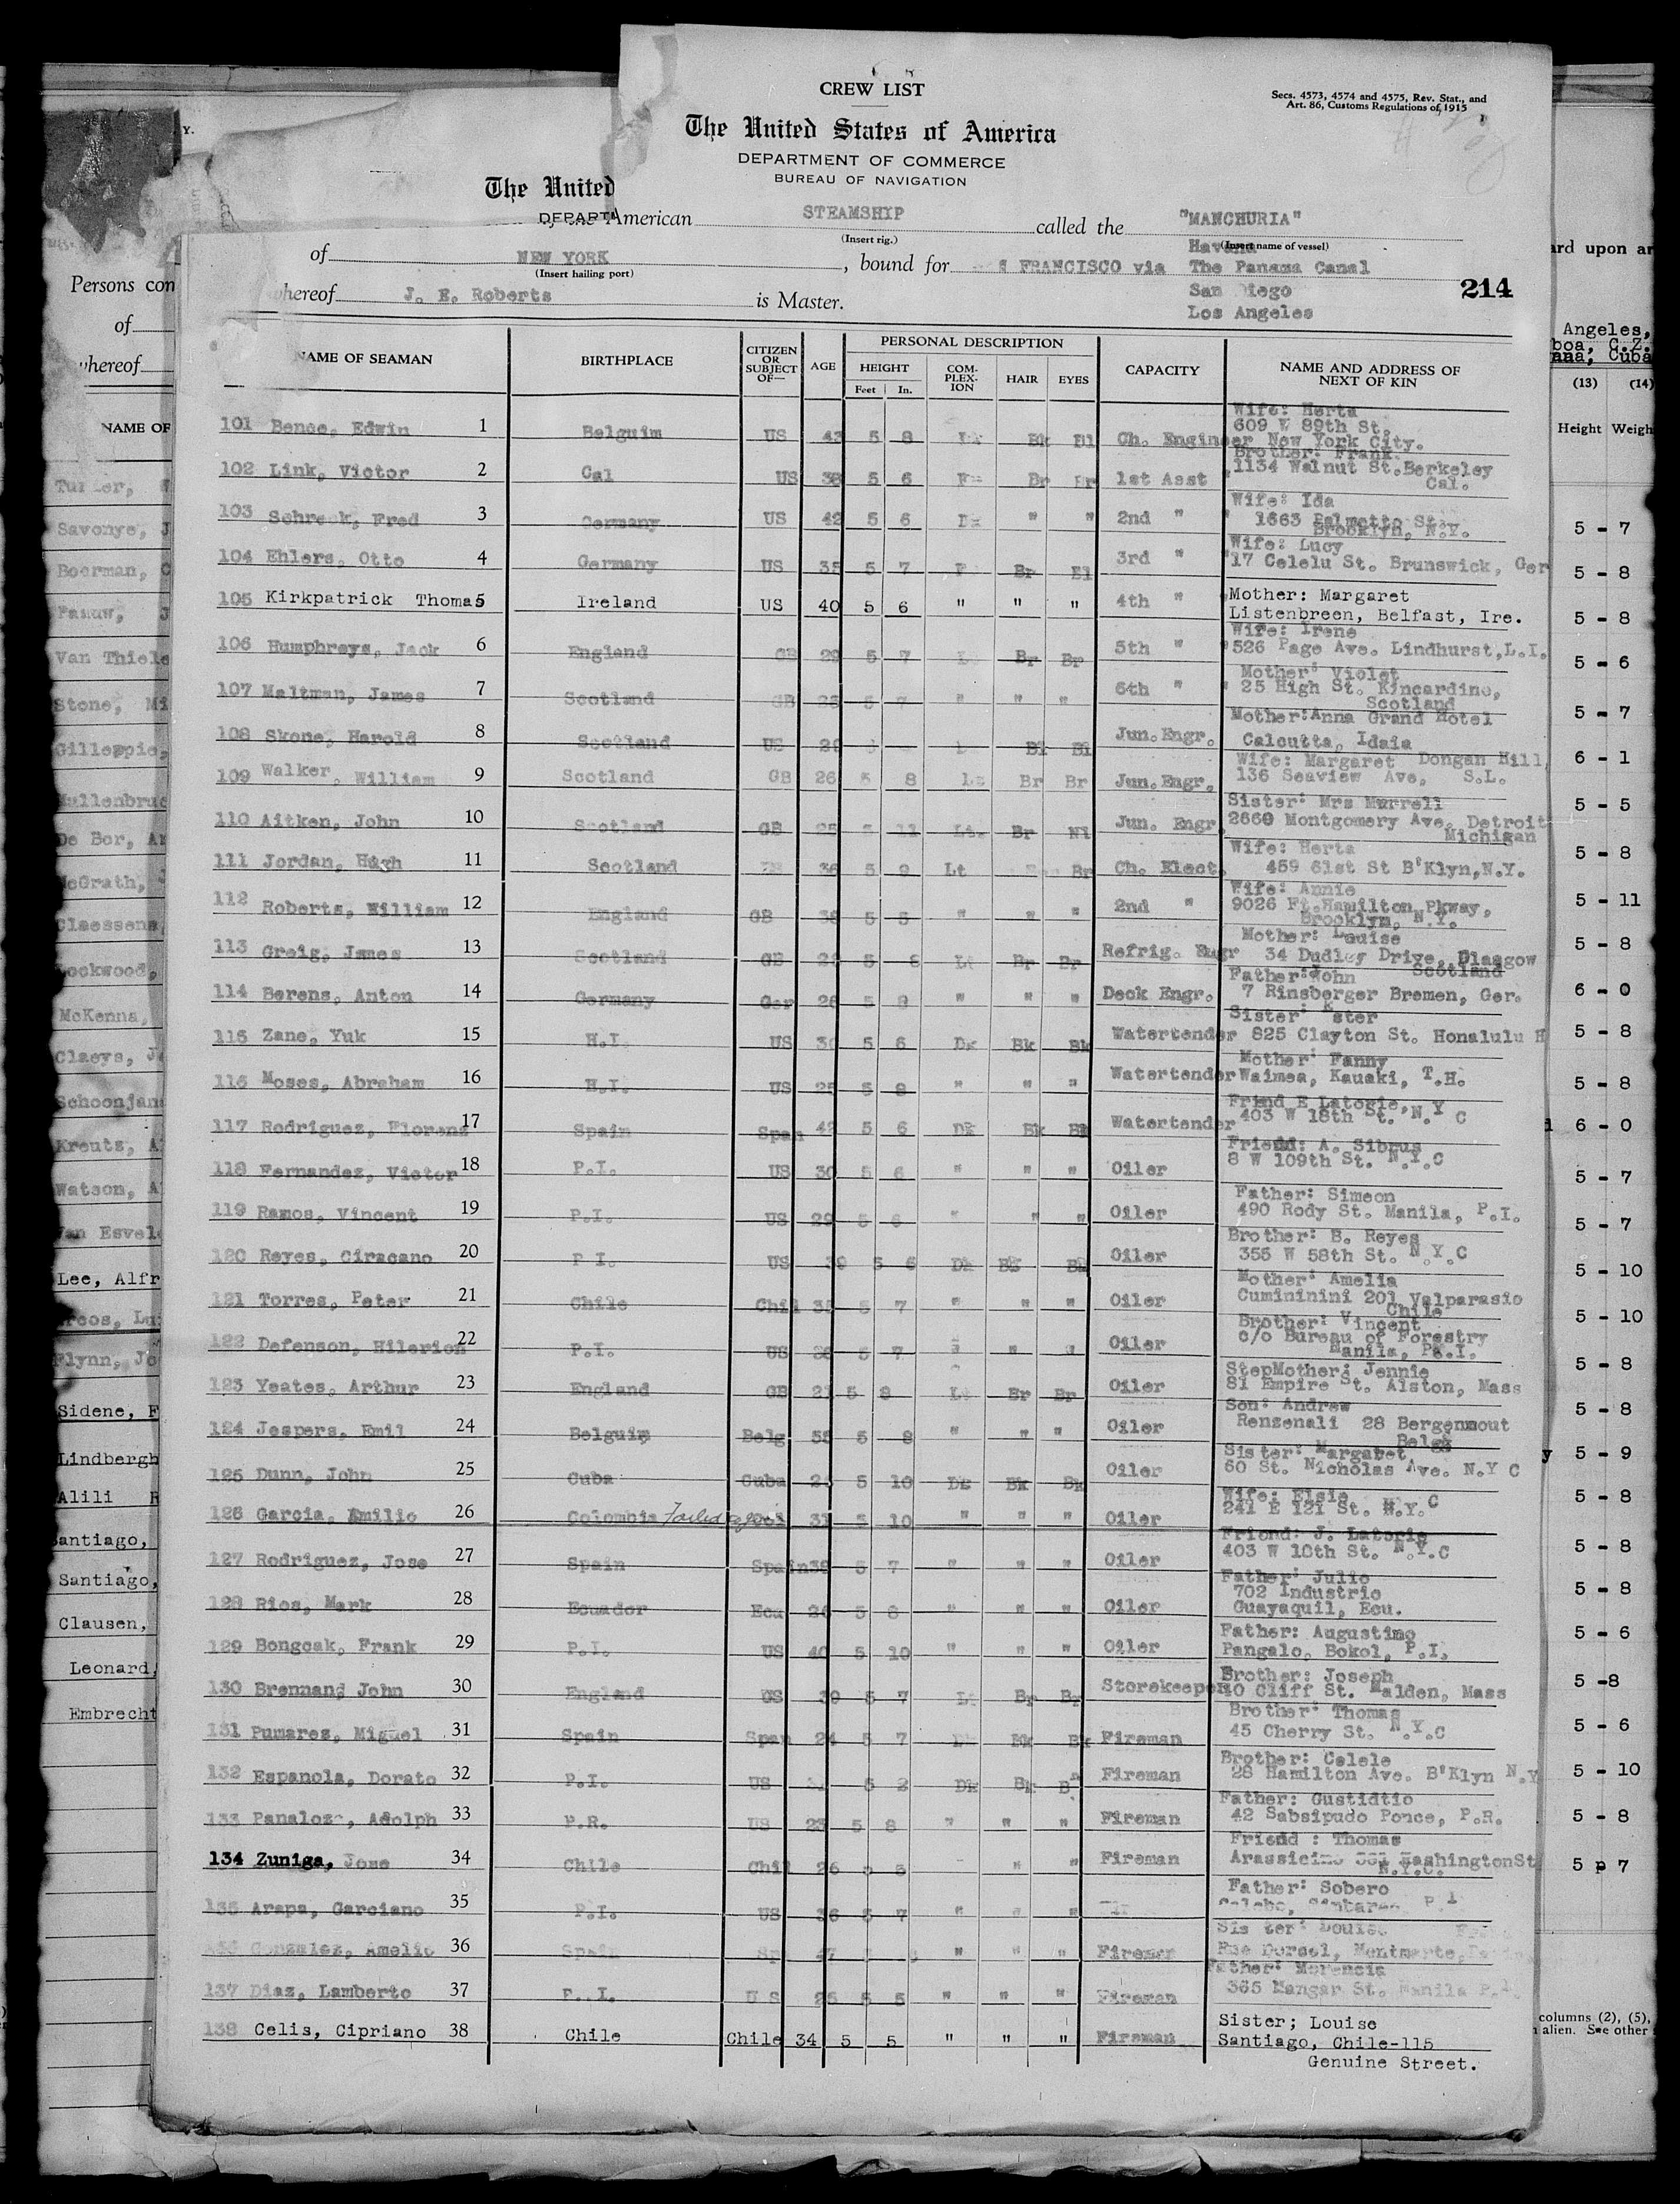 CREW LIST
Secs. 4573, 4574 and 4575, Rev. Stat., and
Art. 86, Customs Regulations of, 1915
The United States of America
DEPARTMENT OF COMMERCE
BUREAU OF NAVIGATION
The United
American STEAMSHIP called the "MANCHURIA"
(Insert rig.) (Insert name of vessel)
Havana
of NEW YORK, bound for FRANCISCO via The Panama Canal
(Insert hailing port)
San Diego 214
whereof J. E. Roberts is Master.
Los Angeles
NAME OF SEAMAN BIRTHPLACE CITIZEN OR SUBJECT OF— AGE PERSONAL DESCRIPTION CAPACITY NAME AND ADDRESS OF NEXT OF KIN
HEIGHT COM-PLEX-ION HAIR EYES
Feet In.
101 Bence, Edwin 1 Belguim US 43 5 8 Bk Bl Ch. Engineer Wife: Herta
609 W 89th St.
New York City.
102 Link, Victor 2 Cal US 38 5 6 Br Br 1st Asst Brother: Frank
1134 Walnut St. Berkeley
Cal.
103 Schreck, Fred 3 Germany US 42 5 6 Dk " " 2nd " Wife: Ida
1663 Palmetto St.
Brooklyn, N.Y.
104 Ehlers, Otto 4 Germany US 35 5 7 Br Bl 3rd " Wife: Lucy
17 Celelu St. Brunswick, Ger
105 Kirkpatrick Thomas 5 Ireland US 40 5 6 " " " 4th " Mother: Margaret
Listenbreen, Belfast, Ire.
106 Humphreys, Jack 6 England GB 29 5 7 Br Br 5th " Wife: Irene
526 Page Ave. Lindhurst, L.I.
107 Maltman, James 7 Scotland GB 25 5 7 " " " 6th " Mother: Violet
25 High St. Kincardine,
Scotland
108 Skone, Harold 8 Scotland US Bl Bl Jun. Engr. Mother: Anna Grand Hotel
Calcutta, Idaia
109 Walker, William 9 Scotland GB 26 5 8 Br Br Jun. Engr. Wife: Margaret Dongan Hill
136 Seaview Ave, S.L.
110 Aitken, John 10 Scotland GB 25 11 Lt. Br Jun. Engr Sister: Mrs Murrell
2660 Montgomery Ave, Detroit
Michigan
111 Jordan, Hugh 11 Scotland 36 5 9 Lt Br Ch. Elect. Wife: Herta
459 61st St B'Klyn, N.Y.
112 Roberts, William 12 England GB 38 5 5 " " " 2nd " Wife: Annie
9026 Ft. Hamilton Pkway,
Brooklyn, N.Y.
113 Greig, James 13 Scotland GB 5 8 Lt Br Br Refrig. Engr Mother: Louise
34 Dudley Drive, Glasgow
Scotland
114 Berens, Anton 14 Germany Ger 26 5 9 " " " Deck Engr. Father: John
7 Rinsberger Bremen, Ger.
115 Zane, Yuk 15 H.I. US 30 5 6 Dk Bk Bk Watertender Sister: Ester
825 Clayton St. Honalulu H
116 Moses, Abraham 16 H.I. US 25 5 8 " " " Watertender Mother: Fanny
Waimea, Kauaki, T.H.
117 Rodriguez, Florenz 17 Spain Span 42 5 6 Dk Bk Bk Watertender Friend E Latorie,
403 W 18th St. N.Y C
118 Fernandez, Victor 18 P.I. US 30 5 6 " " " Oiler Friend: A. Sibrus
8 W 109th St. N.Y.C
119 Ramos, Vincent 19 P.I. US 29 5 6 " " " Oiler Father: Simeon
490 Rody St. Manila, P.I.
120 Reyes, Ciracano 20 P I. US 39 5 6 Dk Bk Bk Oiler Brother: B. Reyes
355 W 58th St. N.Y.C
121 Torres, Peter 21 Chile Chil 35 5 7 " " " Oiler Mother: Amelia
Cumininini 201 Valparasio
Chile
122 Defenson, Hilerion 22 P.I. US 36 5 7 " Oiler Brother: Vincent
c/o Bureau of Forestry
Manila, P.I.
123 Yeates, Arthur 23 England GB 21 5 8 Lt Br Br Oiler StepMother: Jennie
81 Empire St. Alston, Mass
124 Jespers, Emil 24 Belguim Belg 55 5 8 " " " Oiler Son: Andrew
Renzenali 28 Bergenmout
Belg
125 Dunn, John 25 Cuba Cuba 5 10 Dk Bk Bk Oiler Sister: Margaret
60 St. Nicholas Ave. N.Y C
126 Garcia, Emilio 26 Colombia Failed Col 31 5 10 " " " Oiler Wife: Elsie
241 E 121 St. N.Y. C
127 Rodriguez, Jose 27 Spain Spain 39 5 7 " " " Oiler Friend: J. Latorie
403 W 18th St. N.Y.C
128 Rios, Mark 28 Ecuador Ecu 26 5 8 " " " Oiler Father: Julio
702 Industrio
Guayaquil, Ecu.
129 Bongcak, Frank 29 P.I. US 40 5 10 " " " Oiler Father: Augustino
Pangalo, Bokol, P.I.
130 Brennand John 30 England US 39 5 7 Br Br Storekeeper Brother: Joseph
10 Cliff St. Malden, Mass
131 Pumarez, Miguel 31 Spain Span 24 5 7 Bk Bk Fireman Brother: Thomas
45 Cherry St. N.Y.C
132 Espanola, Dorato 32 P.I. US 5 2 Dk Bk Fireman Brother: Celele
28 Hamilton Ave. B'Klyn N.Y
133 Panaloz, Adolph 33 P.R. US 23 5 8 " " " Fireman Father: Gustidtio
42 Sabsipudo Ponce, P.R.
134 Zuniga, Jose 34 Chile Chil 26 5 5 " " Fireman Friend : Thomas
Washington St
N.Y.C.
135 Arapa, Garciano 35 P.I. US 36 5 7 " " " Father: Sobero
Gonzalez, Amelio 36 Spain Sp 47 " " " Fireman Sister: Louise
Rue Dorsel, Montmarte,
137 Diaz, Lamberto 37 P. I. U S 26 5 5 " " " Fireman Father: Morencia
365 Mangar St. Manila P.I.
138 Celis, Cipriano 38 Chile Chile 34 5 5 " " " Fireman Sister; Louise
Santiago, Chile-115
Genuine Street.
Persons con
of
whereof
NAME OF
Savonye, J
Boerman, C
Van Thiele
Stone, Mi
Gilleppie,
Mullenbruc
De Bor, Ar
McGrath, J
Claessens
Lockwood,
McKenna,
Claeys, J
Schoonjan
Kreutz, A
Watson, A
Van Esvel
Lee, Alfr
Flynn, Jo
Sidene, F
Lindbergh
Alili R
Santiago,
Santiago,
Clausen,
Leonard,
Embrecht
ard upon ar
Angeles,
boa, C.Z.
ana, Cuba
(13) (14)
Height Weigh
5 - 7
5 - 8
5 - 8
5 - 6
5 - 7
6 - 1
5 - 5
5 - 8
5 - 11
5 - 8
6 - 0
5 - 8
5 - 8
6 - 0
5 - 7
5 - 7
5 - 10
5 - 10
5 - 8
5 - 8
5 - 9
5 - 8
5 - 8
5 - 8
5 - 6
5 -8
5 - 6
5 - 10
5 - 8
5 p 7
columns (2), (5),
alien. See other